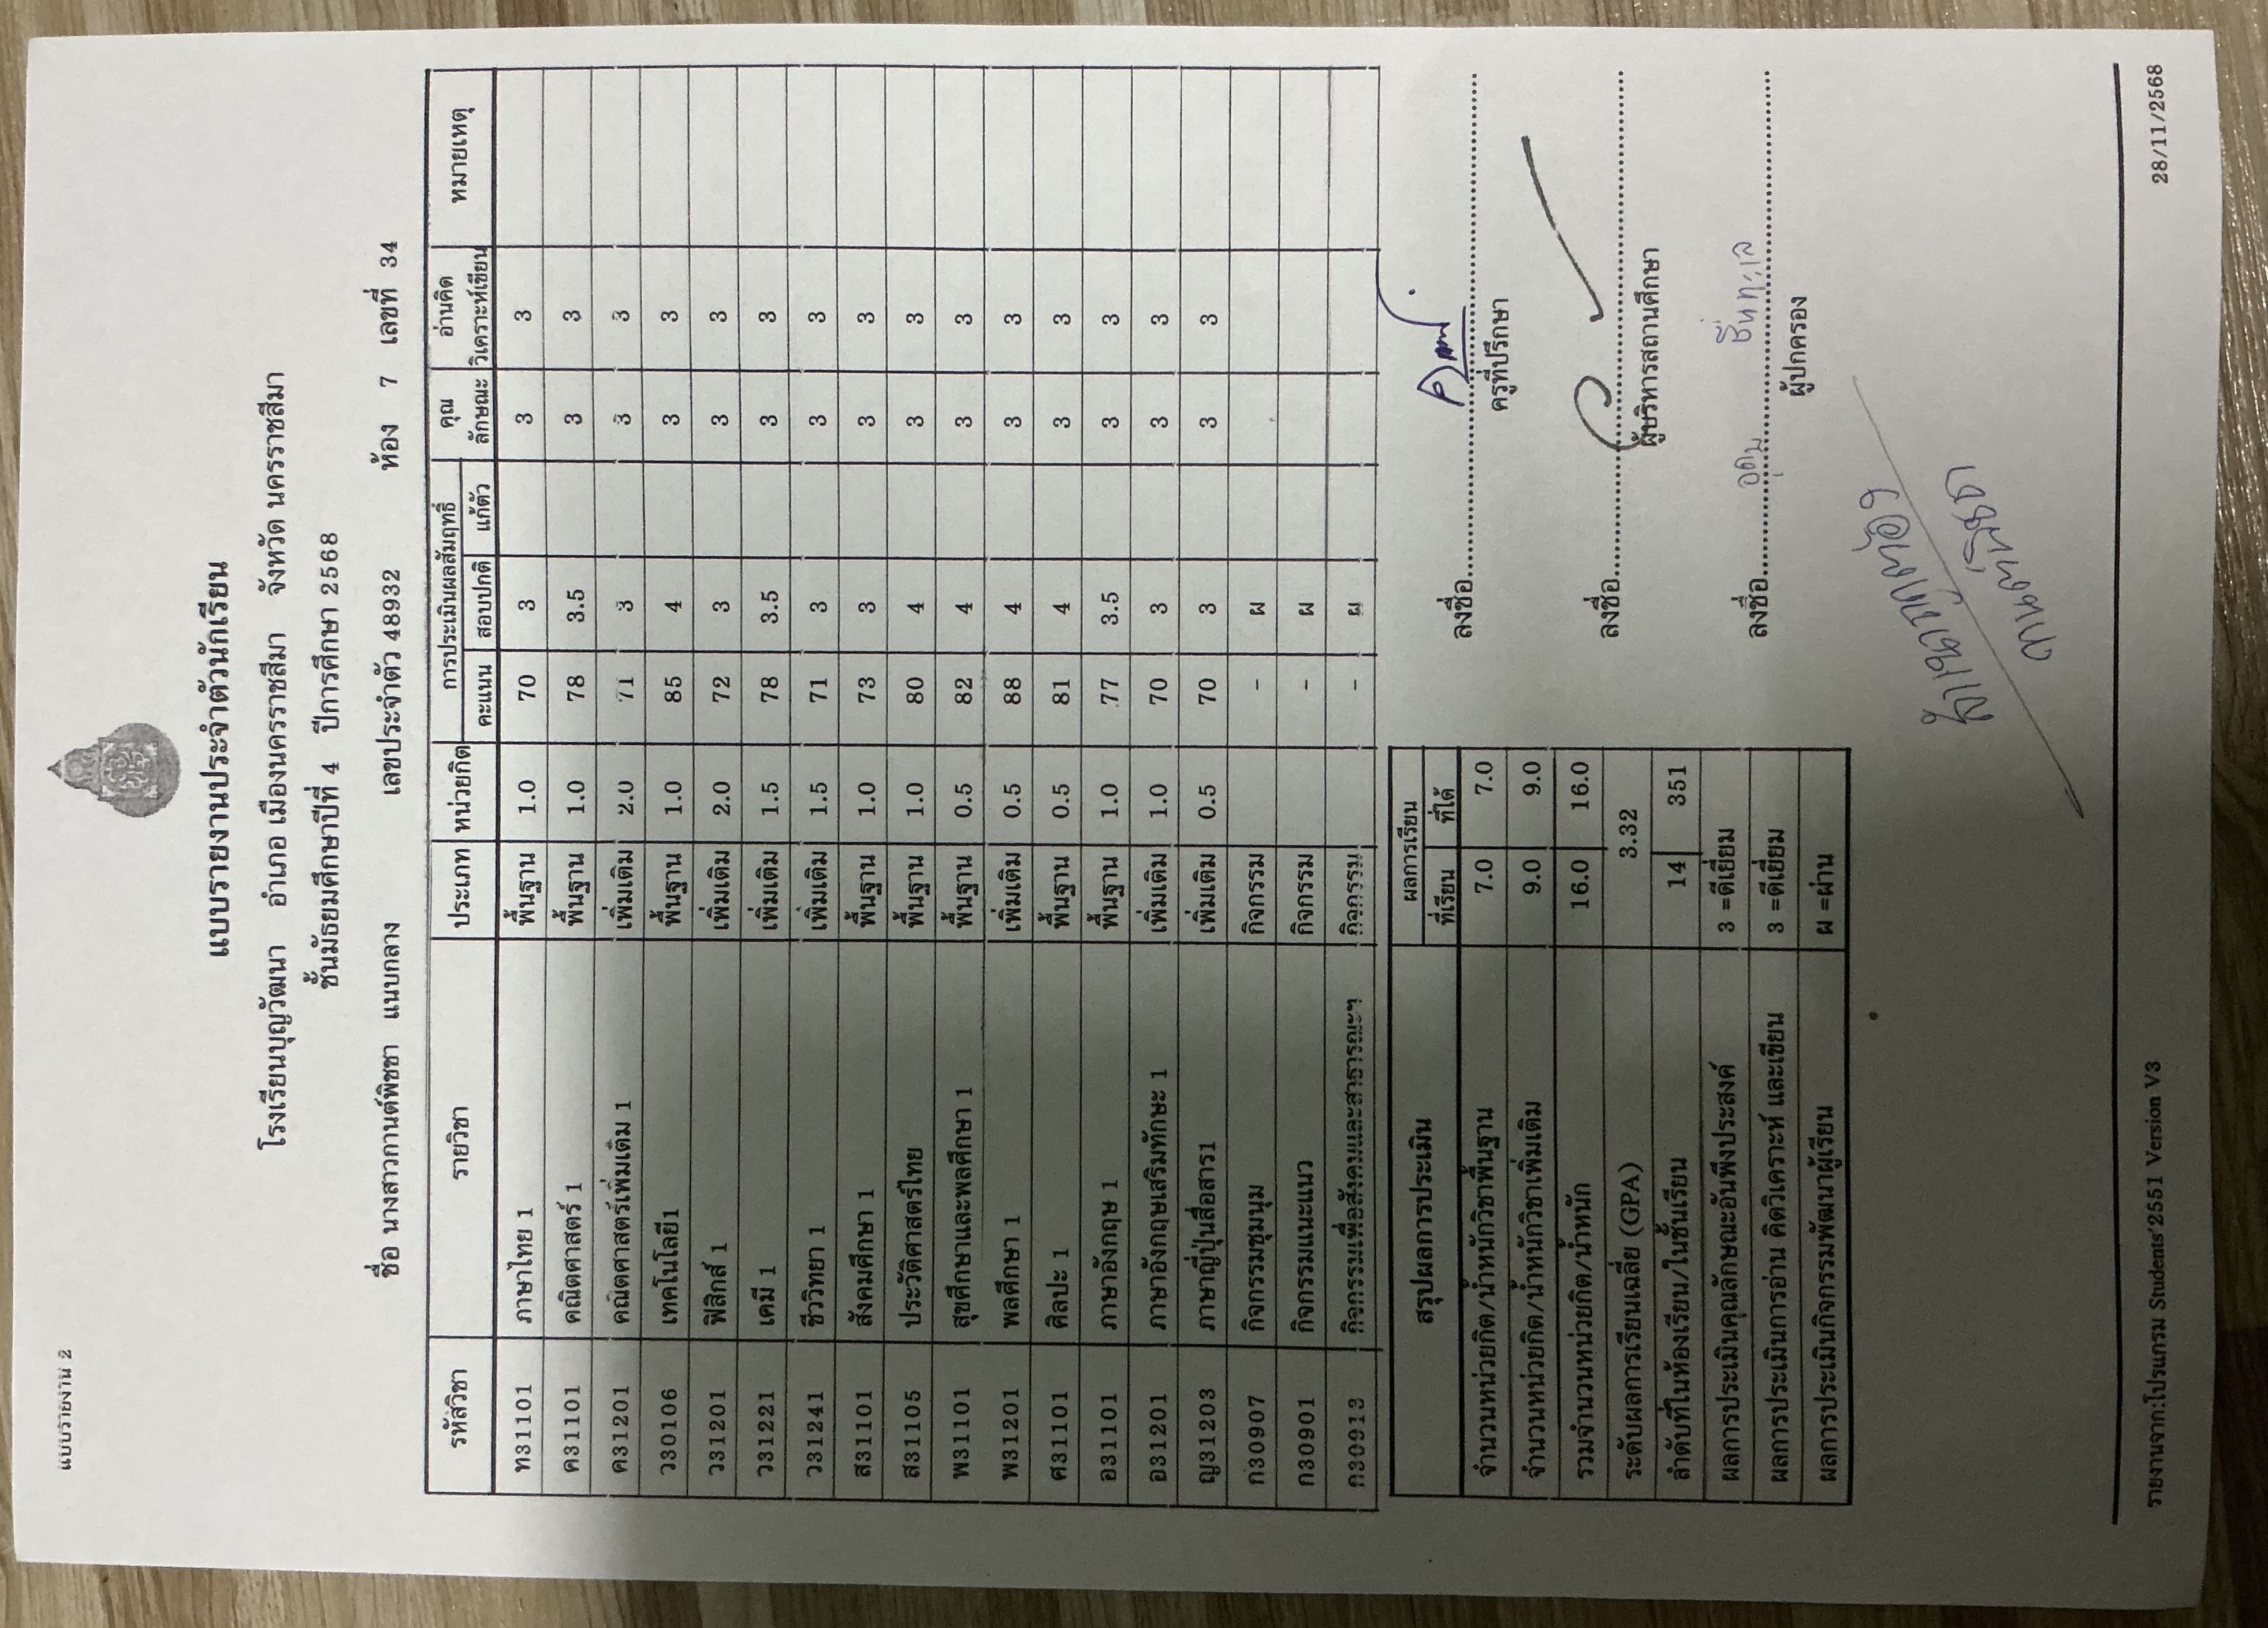 แบบรายงาน 2
แบบรายงานประจำตัวนักเรียน
โรงเรียนบุญวัฒนา อำเภอ เมืองนครราชสีมา จังหวัด นครราชสีมา
ชั้นมัธยมศึกษาปีที่ 4 ปีการศึกษา 2568
ชื่อ นางสาวกานต์พิชชา แนบกลาง เลขประจำตัว 48932 ห้อง 7 เลขที่ 34
รหัสวิชา รายวิชา ประเภท หน่วยกิต การประเมินผลสัมฤทธิ์ คุณ อ่านคิด หมายเหตุ
คะแนน สอบปกติ แก้ตัว ลักษณะ วิเคราะห์เขียน
ท31101 ภาษาไทย 1 พื้นฐาน 1.0 70 3 3 3
ค31101 คณิตศาสตร์ 1 พื้นฐาน 1.0 78 3.5 3 3
ค31201 คณิตศาสตร์เพิ่มเติม 1 เพิ่มเติม 2.0 71 3 3 3
ว30106 เทคโนโลยี1 พื้นฐาน 1.0 85 4 3 3
ว31201 ฟิสิกส์ 1 เพิ่มเติม 2.0 72 3 3 3
ว31221 เคมี 1 เพิ่มเติม 1.5 78 3.5 3 3
ว31241 ชีววิทยา 1 เพิ่มเติม 1.5 71 3 3 3
ส31101 สังคมศึกษา 1 พื้นฐาน 1.0 73 3 3 3
ส31105 ประวัติศาสตร์ไทย พื้นฐาน 1.0 80 4 3 3
พ31101 สุขศึกษาและพลศึกษา 1 พื้นฐาน 0.5 82 4 3 3
พ31201 พลศึกษา 1 เพิ่มเติม 0.5 88 4 3 3
ศ31101 ศิลปะ 1 พื้นฐาน 0.5 81 4 3 3
อ31101 ภาษาอังกฤษ 1 พื้นฐาน 1.0 77 3.5 3 3
อ31201 ภาษาอังกฤษเสริมทักษะ 1 เพิ่มเติม 1.0 70 3 3 3
ญ31203 ภาษาญี่ปุ่นสื่อสาร1 เพิ่มเติม 0.5 70 3 3 3
ก30907 กิจกรรมชุมนุม กิจกรรม - ผ
ก30901 กิจกรรมแนะแนว กิจกรรม - ผ
ก30913 กิจกรรมเพื่อสังคมและสาธารณะฯ กิจกรรม - ผ
สรุปผลการประเมิน ผลการเรียน
ที่เรียน ที่ได้
จำนวนหน่วยกิต/น้ำหนักวิชาพื้นฐาน 7.0 7.0
จำนวนหน่วยกิต/น้ำหนักวิชาเพิ่มเติม 9.0 9.0
รวมจำนวนหน่วยกิต/น้ำหนัก 16.0 16.0
ระดับผลการเรียนเฉลี่ย (GPA) 3.32
ลำดับที่ในห้องเรียน/ในชั้นเรียน 14 351
ผลการประเมินคุณลักษณะอันพึงประสงค์ 3 =ดีเยี่ยม
ผลการประเมินการอ่าน คิดวิเคราะห์ และเขียน 3 =ดีเยี่ยม
ผลการประเมินกิจกรรมพัฒนาผู้เรียน ผ =ผ่าน
ลงชื่อ
ครูที่ปรึกษา
ลงชื่อ
ผู้บริหารสถานศึกษา
ลงชื่อ อุดม ชื่นทะเล
ผู้ปกครอง
สำเนาถูกต้อง
กานต์พิชชา
รายงานจาก:โปรแกรม Students'2551 Version V3 28/11/2568